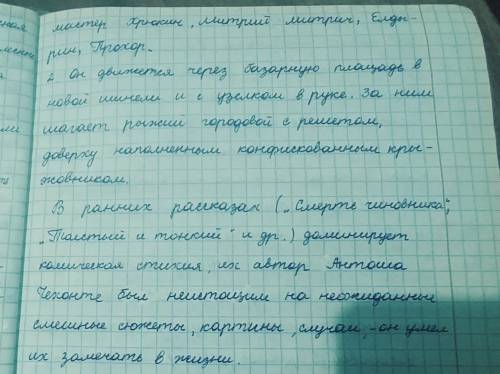 мастер Хрюкин, Митрий Митрич, Елды-
рин, Прохор.
2. Он движется через базарную площадь в
новой шинели и с узелком в руке. За ним
шагает рыжий городовой с решетом,
доверху наполненным конфискованным кры-
жовником.
В ранних рассказах („Смерть чиновника",
„Толстый и тонкий" и др.) доминирует
комическая стихия, их автор Антоша
Чехонте был неистощим на неожиданные
смешные сюжеты, картины, случаи, - он умел
их замечать в жизни.